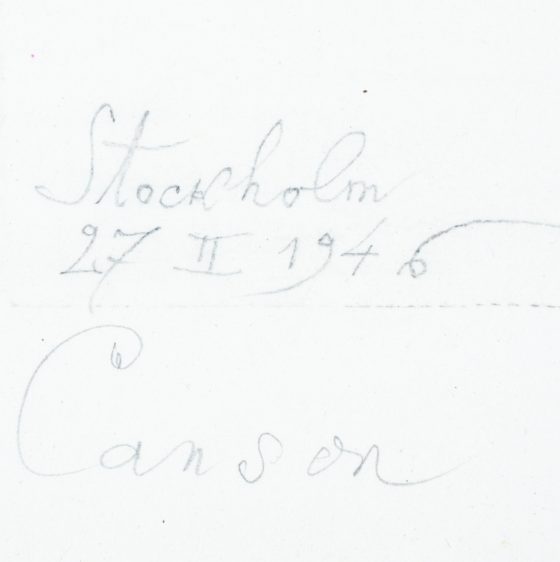 Stockholm
27 II 1946
Canson